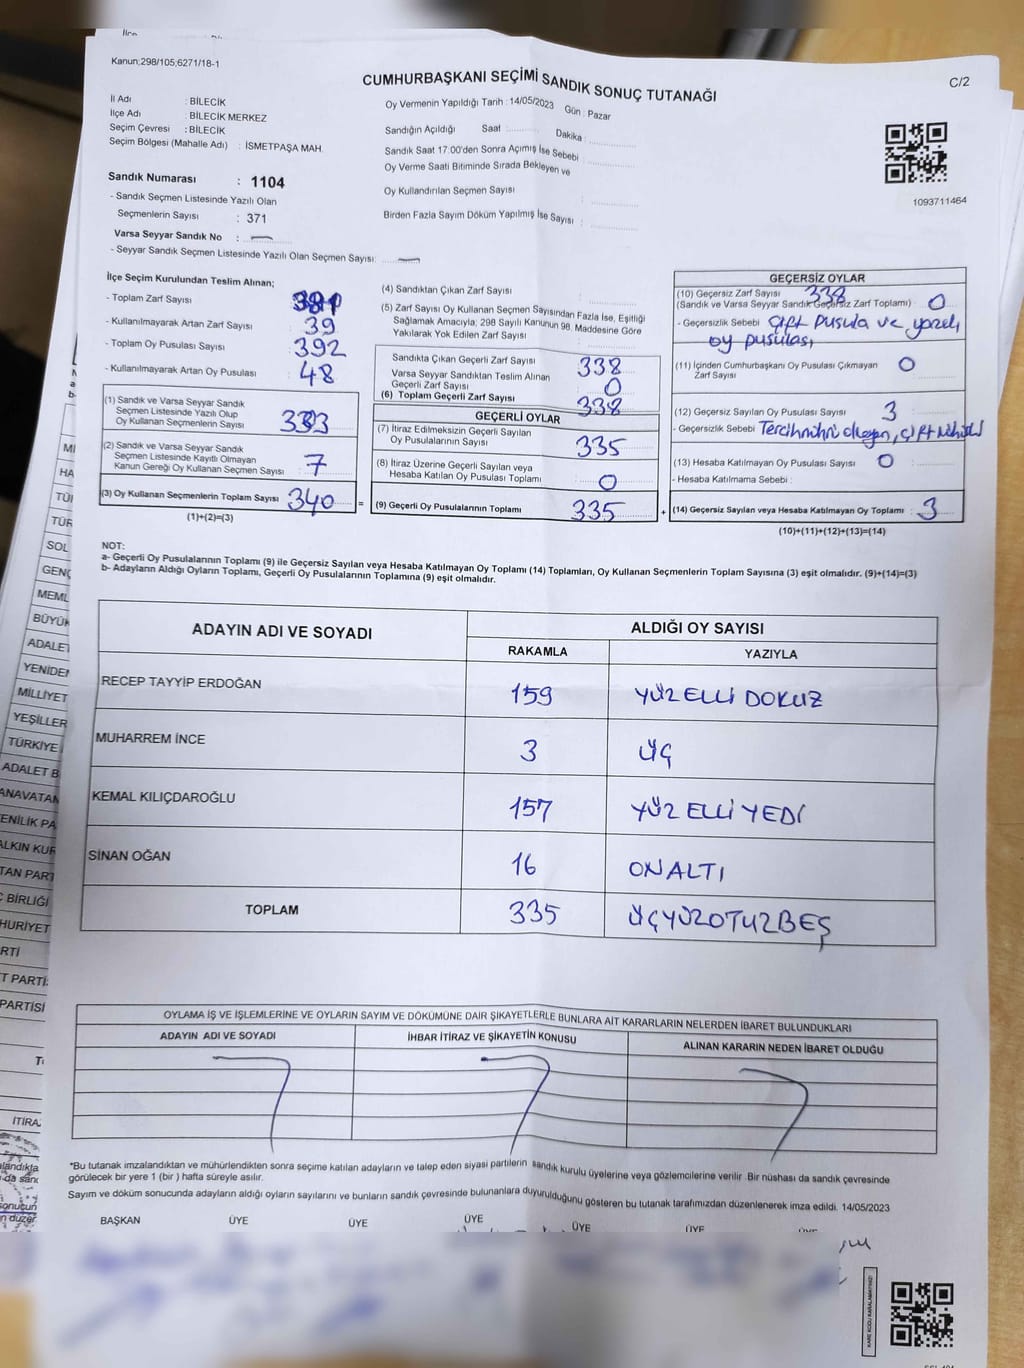 Kanun;298/105;6271/18-1
CUMHURBAŞKANI SEÇİMİ SANDIK SONUÇ TUTANAĞI
C/2
İl Adı : BİLECİK
İlçe Adı : BİLECİK MERKEZ
Seçim Çevresi : BİLECİK
Seçim Bölgesi (Mahalle Adı) : İSMETPAŞA MAH.
Sandık Numarası : 1104
- Sandık Seçmen Listesinde Yazılı Olan
Seçmenlerin Sayısı : 371
Varsa Seyyar Sandık No :
- Seyyar Sandık Seçmen Listesinde Yazılı Olan Seçmen Sayısı:
Oy Vermenin Yapıldığı Tarih : 14/05/2023 Gün : Pazar
Sandığın Açıldığı Saat :.......... Dakika :
Sandık Saat 17.00'den Sonra Açımış İse Sebebi :
Oy Verme Saati Bitiminde Sırada Bekleyen ve
Oy Kullandırılan Seçmen Sayısı :
Birden Fazla Sayım Döküm Yapılmış İse Sayısı :
1093711464
İlçe Seçim Kurulundan Teslim Alınan;
- Toplam Zarf Sayısı
- Kullanılmayarak Artan Zarf Sayısı : 39
- Toplam Oy Pusulası Sayısı : 392
- Kullanılmayarak Artan Oy Pusulası : 48
(1) Sandık ve Varsa Seyyar Sandık
Seçmen Listesinde Yazılı Olup
Oy Kullanan Seçmenlerin Sayısı : 333
(2) Sandık ve Varsa Seyyar Sandık
Seçmen Listesinde Kayıtlı Olmayan
Kanun Gereği Oy Kullanan Seçmen Sayısı : 7
(3) Oy Kullanan Seçmenlerin Toplam Sayısı 340
(1)+(2)=(3)
(4) Sandıktan Çıkan Zarf Sayısı :
(5) Zarf Sayısı Oy Kullanan Seçmen Sayısından Fazla İse, Eşitliği
Sağlamak Amacıyla; 298 Sayılı Kanunun 98. Maddesine Göre
Yakılarak Yok Edilen Zarf Sayısı :
Sandıkta Çıkan Geçerli Zarf Sayısı : 338
Varsa Seyyar Sandıktan Teslim Alınan
Geçerli Zarf Sayısı : 0
(6) Toplam Geçerli Zarf Sayısı : 338
GEÇERLİ OYLAR
(7) İtiraz Edilmeksizin Geçerli Sayılan
Oy Pusulalarının Sayısı : 335
(8) İtiraz Üzerine Geçerli Sayılan veya
Hesaba Katılan Oy Pusulası Toplamı : 0
(9) Geçerli Oy Pusulalarının Toplamı 335
GEÇERSİZ OYLAR
(10) Geçersiz Zarf Sayısı 338
(Sandık ve Varsa Seyyar Sandık Geçersiz Zarf Toplamı) : 0
- Geçersizlik Sebebi Çift pusula ve
oy pusulası
(11) İçinden Cumhurbaşkanı Oy Pusulası Çıkmayan
Zarf Sayısı 0
(12) Geçersiz Sayılan Oy Pusulası Sayısı : 3
- Geçersizlik Sebebi Tercih mührü olmayan, çift mühürlü
(13) Hesaba Katılmayan Oy Pusulası Sayısı : 0
- Hesaba Katılmama Sebebi :
(14) Geçersiz Sayılan veya Hesaba Katılmayan Oy Toplamı : 3
(10)+(11)+(12)+(13)=(14)
NOT:
a- Geçerli Oy Pusulalarının Toplamı (9) ile Geçersiz Sayılan veya Hesaba Katılmayan Oy Toplamı (14) Toplamları, Oy Kullanan Seçmenlerin Toplam Sayısına (3) eşit olmalıdır. (9)+(14)=(3)
b- Adayların Aldığı Oyların Toplamı, Geçerli Oy Pusulalarının Toplamına (9) eşit olmalıdır.
ADAYIN ADI VE SOYADI ALDIĞI OY SAYISI
RAKAMLA YAZIYLA
RECEP TAYYİP ERDOĞAN 159 YÜZ ELLİ DOKUZ
MUHARREM İNCE 3 ÜÇ
KEMAL KILIÇDAROĞLU 157 YÜZ ELLİ YEDİ
SİNAN OĞAN 16 ON ALTI
TOPLAM 335 ÜÇYÜZOTUZBEŞ
OYLAMA İŞ VE İŞLEMLERİNE VE OYLARIN SAYIM VE DÖKÜMÜNE DAİR ŞİKAYETLERLE BUNLARA AİT KARARLARIN NELERDEN İBARET BULUNDUKLARI
ADAYIN ADI VE SOYADI İHBAR İTİRAZ VE ŞİKAYETİN KONUSU ALINAN KARARIN NEDEN İBARET OLDUĞU
*Bu tutanak imzalandıktan ve mühürlendikten sonra seçime katılan adayların ve talep eden siyasi partilerin sandık kurulu üyelerine veya gözlemcilerine verilir. Bir nüshası da sandık çevresinde
görülecek bir yere 1 (bir ) hafta süreyle asılır.
Sayım ve döküm sonucunda adayların aldığı oyların sayılarını ve bunların sandık çevresinde bulunanlara duyurulduğunu gösteren bu tutanak tarafımızdan düzenlenerek imza edildi. 14/05/2023
BAŞKAN ÜYE ÜYE ÜYE ÜYE ÜYE
KARE KODU KARALAMAYINIZ!